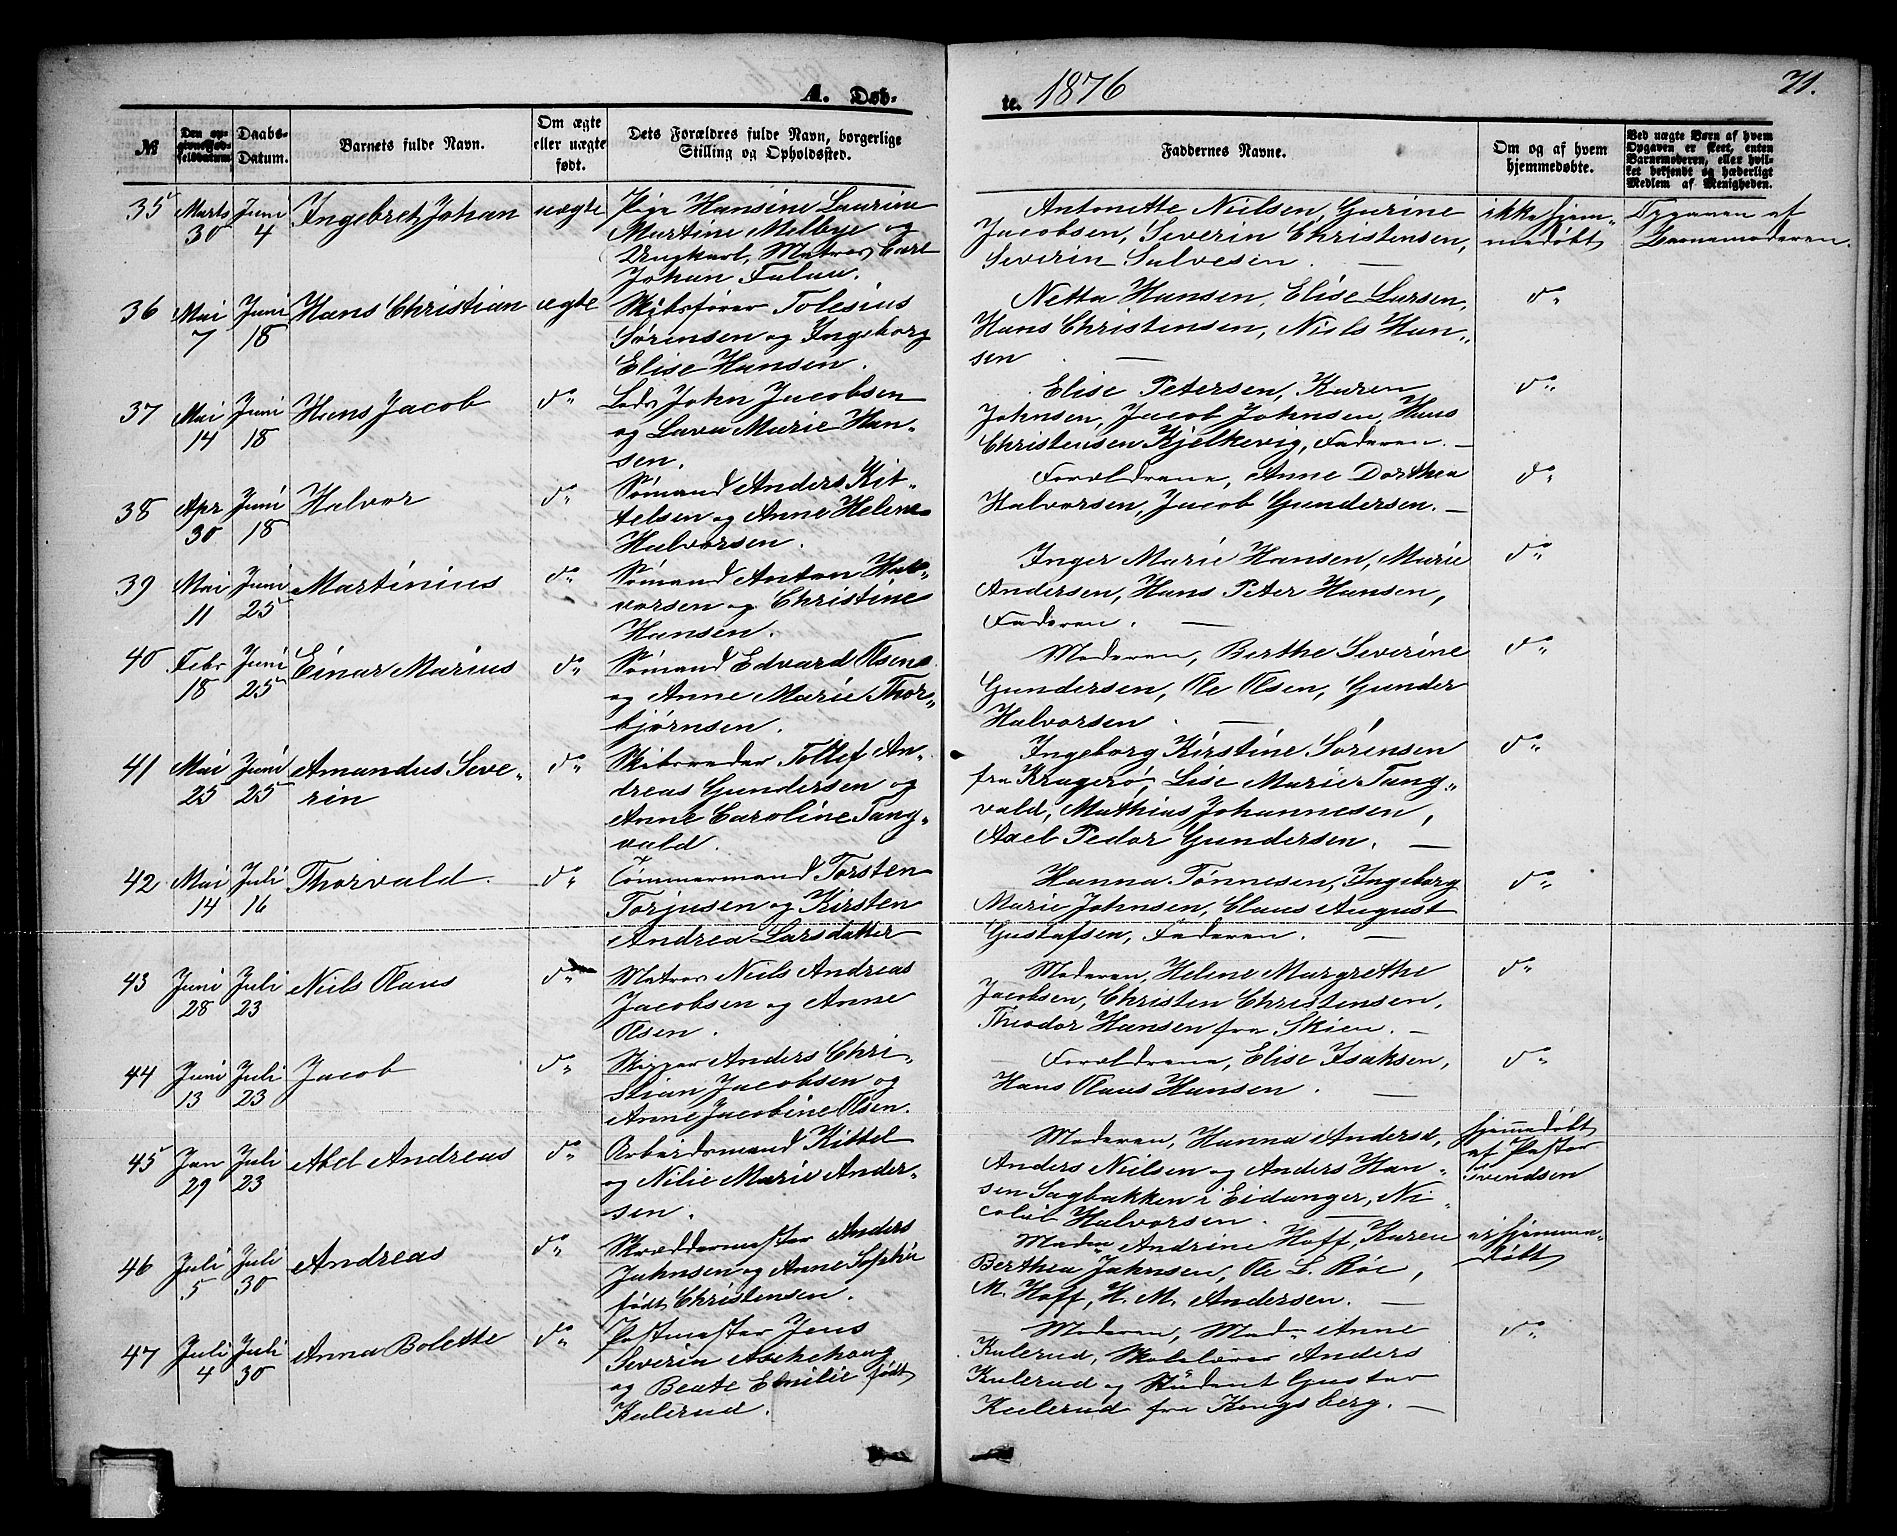 A. Døb-
te. 1876
71.
№
Den opgivne Fødselsdatum
Daabs-Datum.
Barnets fulde Navn.
Om ægte eller uægte født.
Dets Forældres fulde Navn, borgerlige Stilling og Opholdssted.
Faddernes Navne.
Om og af hvem hjemmedøbte.
Ved uægte Børn af hvem Opgaven er skeet, enten Barnemoderen, eller hvilket bekjendt og hæderligt Medlem af Menigheden.
35 Marts 30 Juni 4 Ingebret Johan uægte
Pige Hansine Laurine
Martine Melbye og
Ungkarl, Matros Carl
Johan Falau.
Antonette Nielsen, Gurine
Jacobsen, Severin Christensen,
Severin Salvesen. —
ikke hjem-
medøbt
Opgaven af
Barnemoderen.
36 Mai 7 Juni 18 Hans Christian ægte
Skibsfører Tolesius
Sørensen og Ingeborg
Elise Hansen.
Netta Hansen, Elise Larsen,
Hans Christensen, Niels Han-
sen —
do
37 Mai 14 Juni 18 Hans Jacob do
Lods John Jacobsen
og Lava Marie Han-
sen.
Elise Petersen, Karen
Johnsen, Jacob Johnsen, Hans
Christensen Kjelkevig, Faderen. —
do
38 Apr 30 Juni 18 Halvor do
Sømand Anders Kit-
telsen og Anne Helene
Halvorsen.
Forældrene, Anne Dorthea
Halvorsen, Jacob Gundersen. —
do
39 Mai 11 Juni 25 Martinius do
Sømand Anton Hal-
vorsen og Christine
Hansen.
Inger Marie Hansen, Marie
Andersen, Hans Peter Hansen,
Faderen. —
do
40 Febr 18 Juni 25 Einar Marius do
Sømand Edvard Olsen
og Anne Marie Thor-
bjørnsen.
Moderen, Berthe Severine
Gundersen, Ole Olsen, Gunder
Halvorsen. —
do
41 Mai 25 Juni 25 Amandus Seve-
rin do
Skibsreder Tollef An-
dreas Gundersen og
Anne Caroline Tang-
vald.
Ingeborg Kirstine Sørensen
fra Kragerø, Lise Marie Tang-
vald, Mathias Johannesen,
Axel Peder Gundersen. —
do
42 Mai 14 Juli 16 Thorvald. do
Tømmermand Torsten
Torjusen og Kirsten
Andrea Larsdatter
Hanna Tønnesen, Ingeborg
Marie Johnsen, Claus August
Gustafsen, Faderen. —
do
43 Juni 28 Juli 23 Niels Olaus do
Matros Niels Andreas
Jacobsen og Anne
Olsen.
Moderen, Helene Margrethe
Jacobsen, Christen Christensen,
Theodor Hansen fra Skien. —
do
44 Juni 13 Juli 23 Jacob do
Skipper Anders Chri-
stian Jacobsen og
Anne Jacobine Olsen.
Forældrene, Elise Isaksen,
Hans Olaus Hansen. —
do
45 Jan 29 Juli 23 Abel Andreas do
Arbeidsmand Kittel
og Nilie Marie Ander-
sen.
Moderen, Hanna Andersd,
Anders Nielsen og Anders Han-
sen Sagbakken i Eidanger, Ni-
colai Halvorsen. —
hjemmedøbt
af Pastor
Svendsen
46 Juli 5 Juli 30 Andreas do
Skræddermester Anders
Jahnsen og Anne Sophie
født Christensen.
Madm Andrine Hoff, Karen
Berthea Jahnsen, Ole L. Röe,
M. Hoff, H. M. Andersen. —
ei hjemme-
døbt
47 Juli 4 Juli 30 Anna Bolette do
Postmester Jens
Severin Aschehoug
og Beate Emilie født
Kulerud.
Moderen, Mad. Anne
Kulerud, Skolelærer Anders
Kulerud og Student Gustav
Kulerud fra Kongsberg. —
do